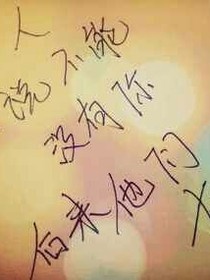 人
说不能
没有你
后来他们